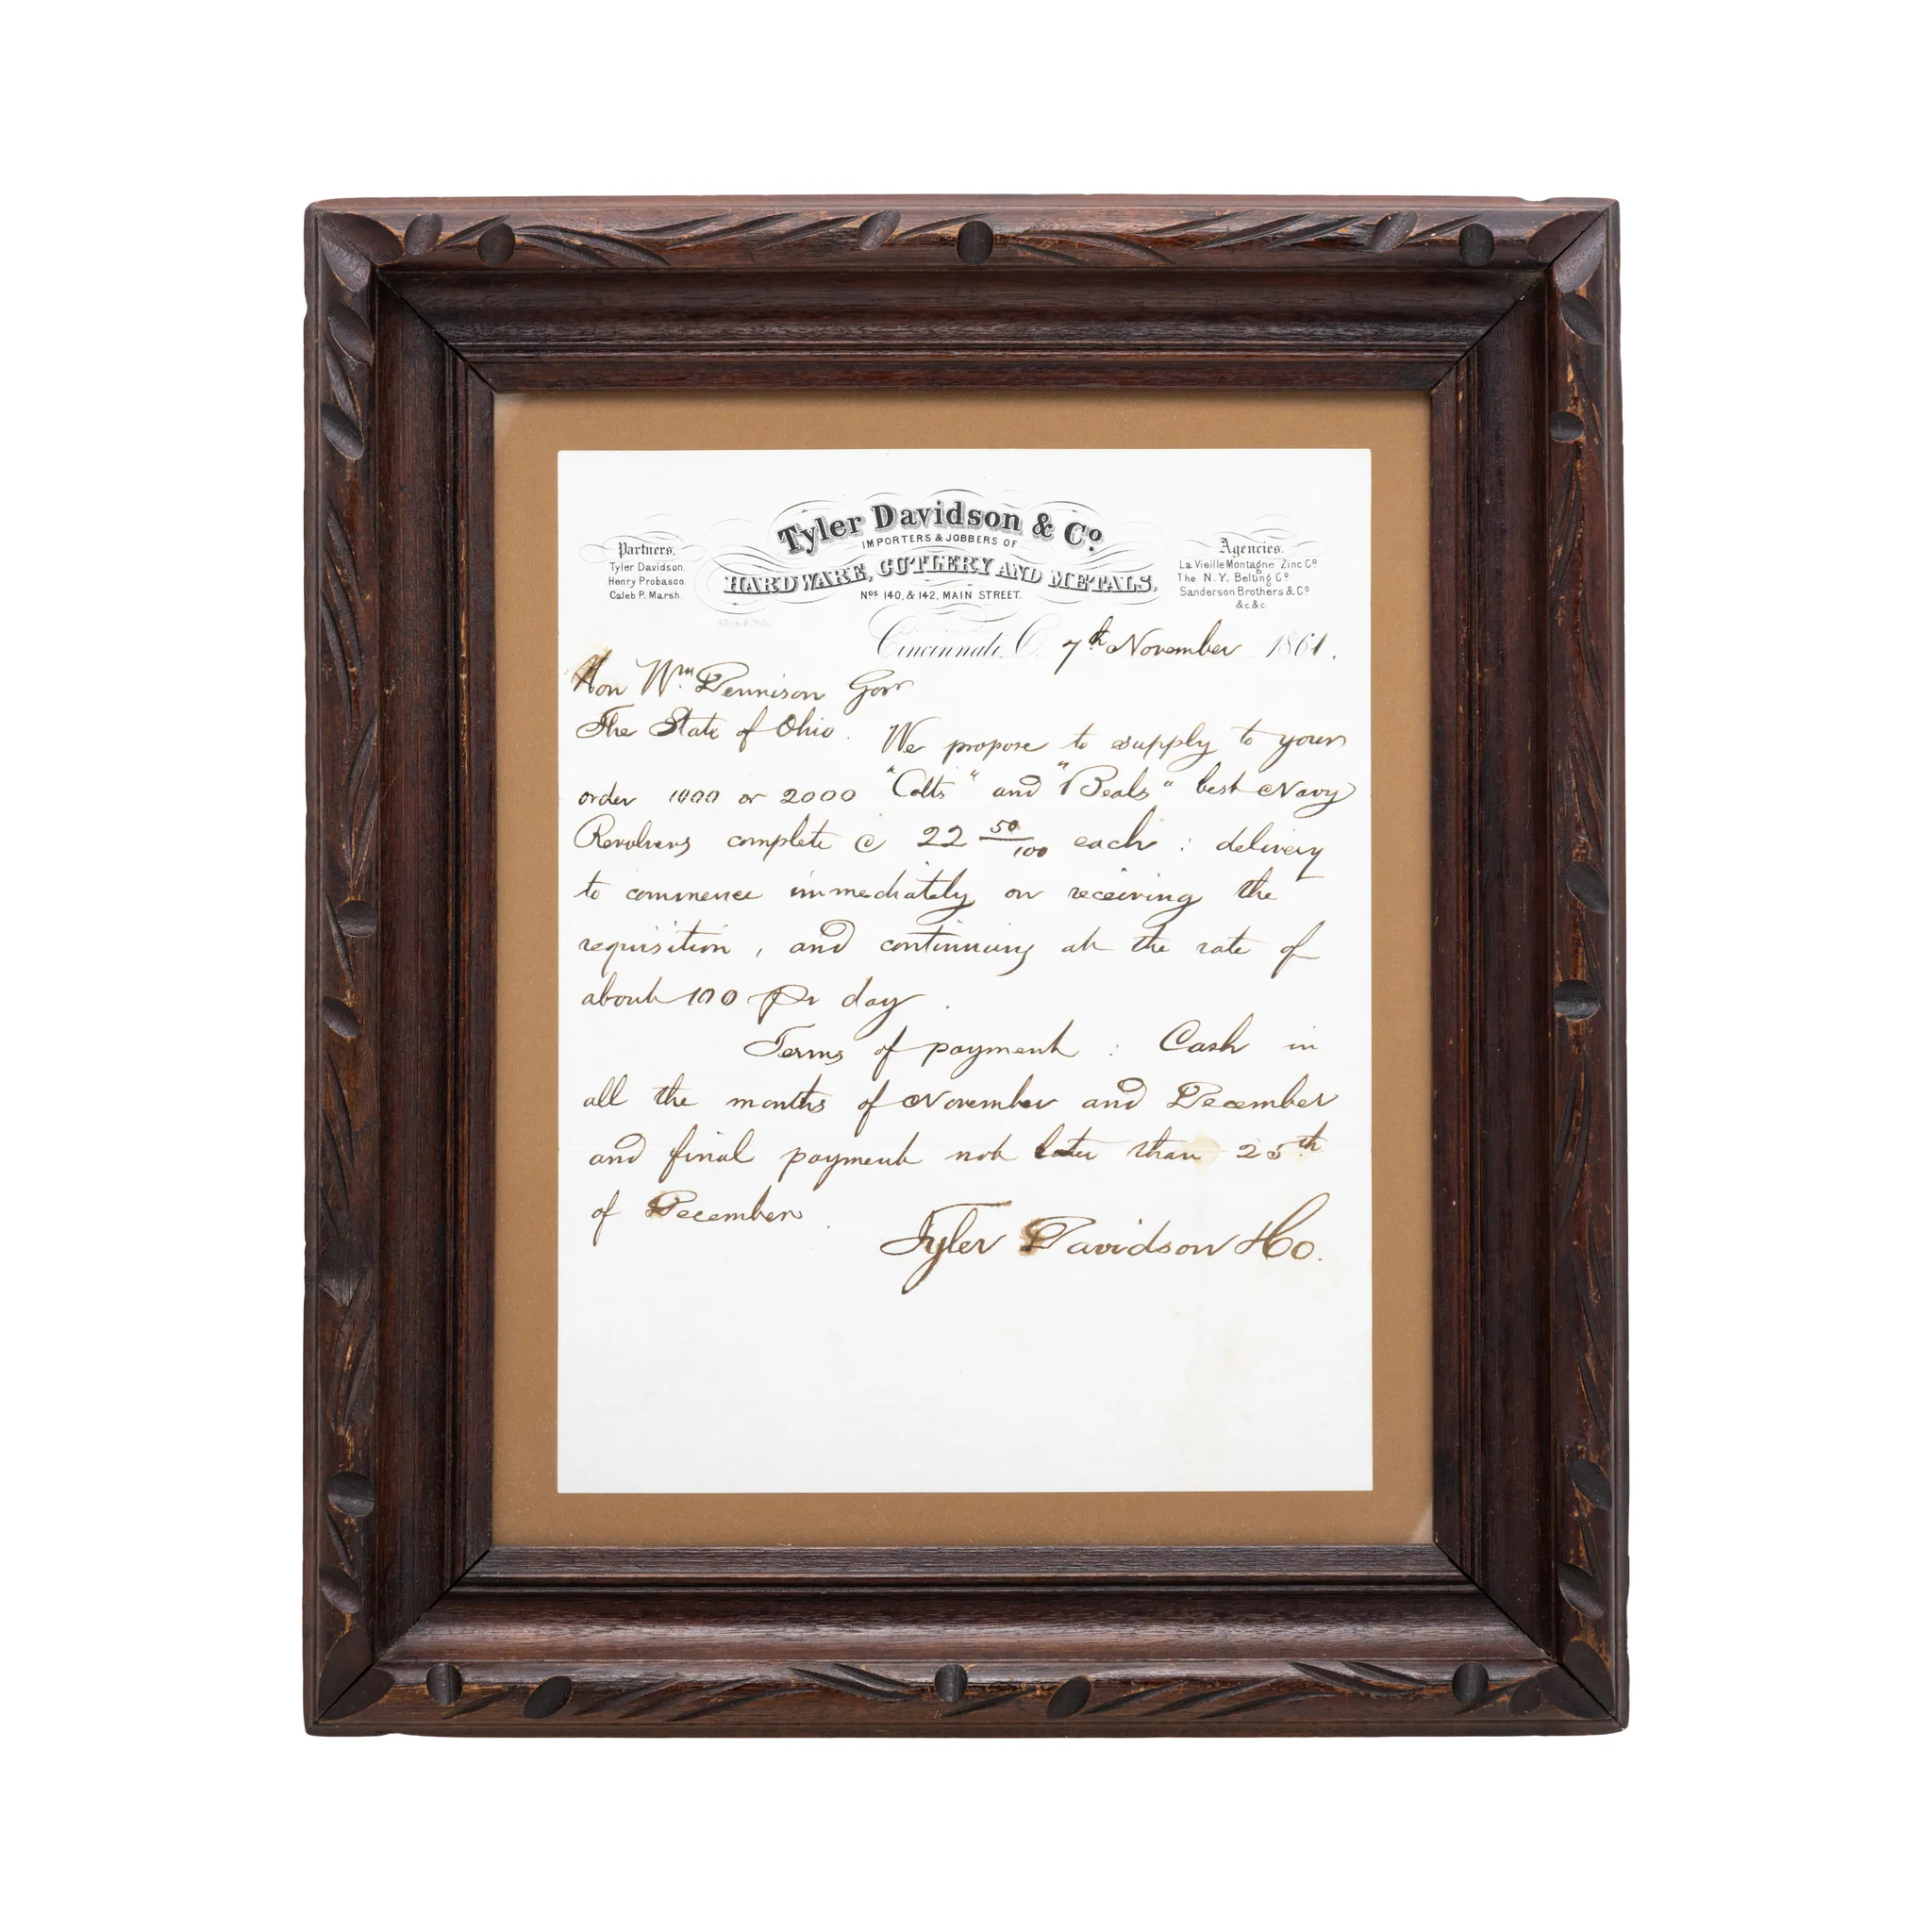 Tyler Davidson & Co.
IMPORTERS & JOBBERS OF
HARDWARE, CUTLERY AND METALS.
Nos 140, & 142, MAIN STREET.
Partners,
Tyler Davidson
Henry Probasco.
Caleb P. Marsh.
Agencies.
La Vieille Montagne Zinc Co
The N.Y. Belting Co
Sanderson Brothers & Co
&c &c.
Cincinnati, O. 7th November 1861.
Hon Wm. Dennison Govr
The State of Ohio. We propose to supply to your
order 1000 or 2000 "Colts" and "Beals" best Navy
Revolvers complete @ 22 50/100 each : delivery
to commence immediately on receiving the
requisition, and continuing at the rate of
about 100 pr day.
Terms of payment : Cash in
all the months of November and December
and final payment not later than 25th
of December.
Tyler Davidson & Co.